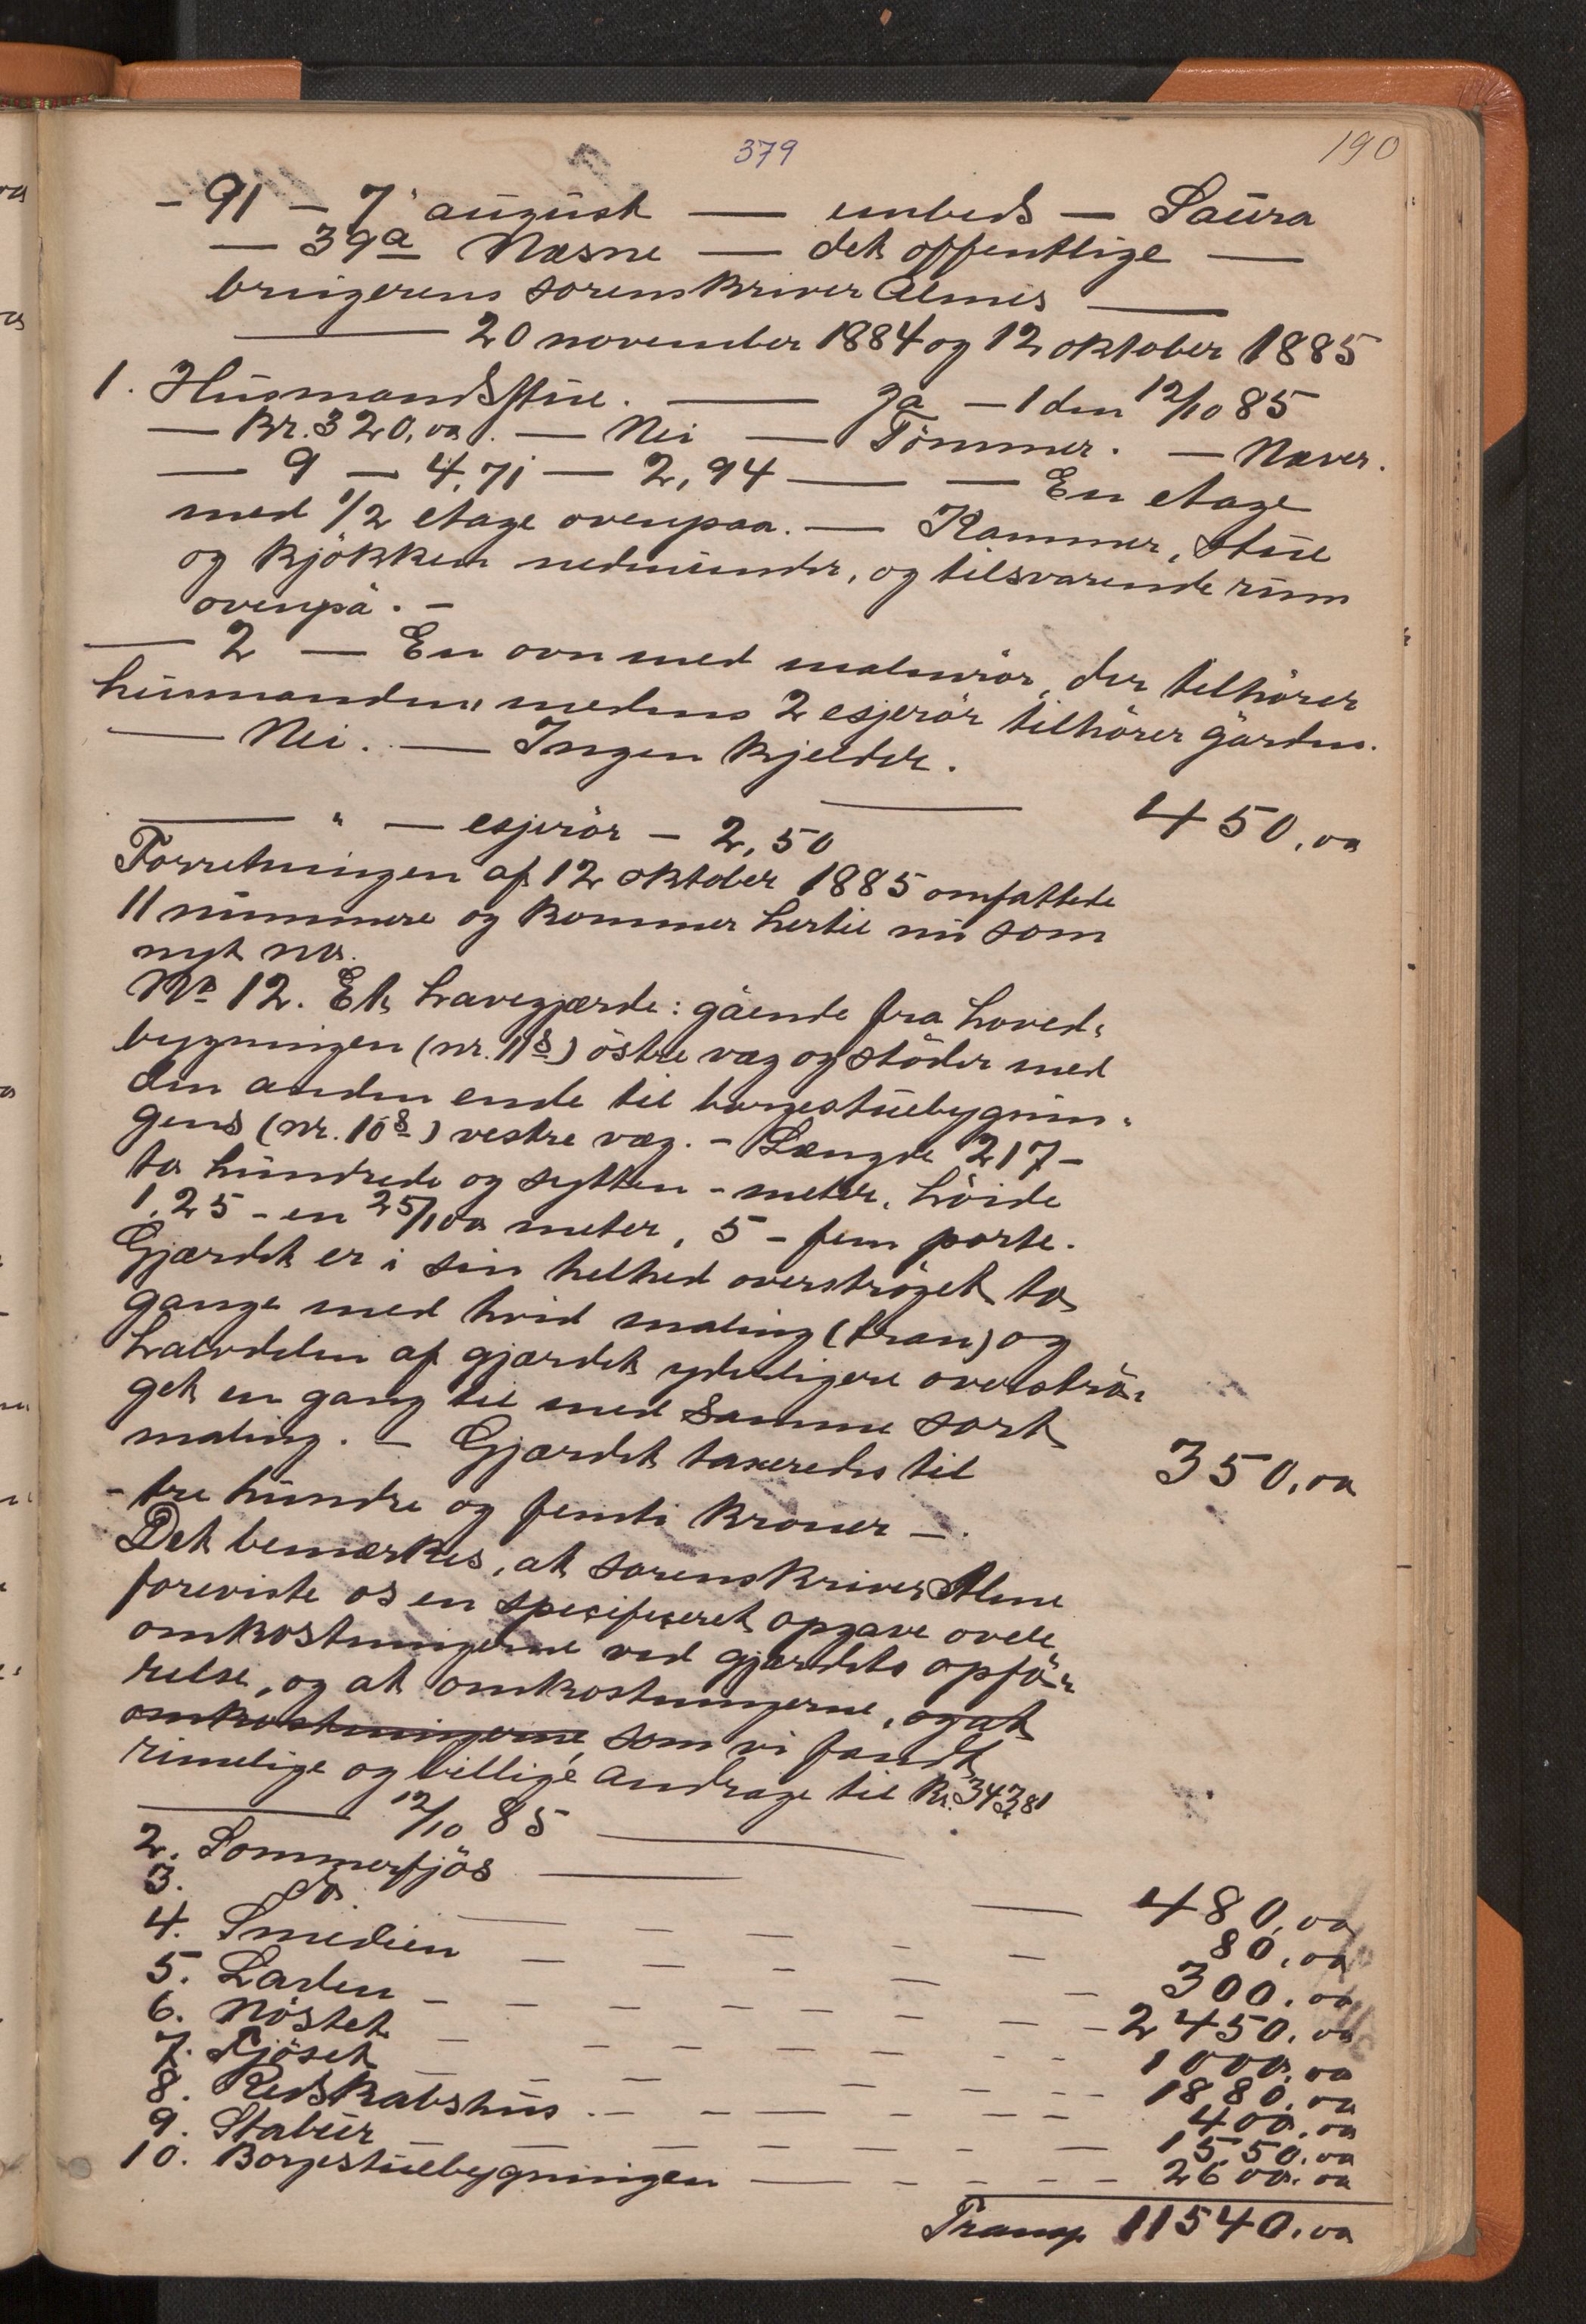 379
190
- 91 - 7' august — embeds — Saura
— 39a Næsne — det offentlige —
brugerens sorenskriver Almes —
— 20 november 1884 og 12 oktober 1885
1. Husmandsstue. — Ja - 1 den 12/10 85
— Kr. 320,00. — Nei — Tömmer. — Næver.
— 9 — 4,71 — 2,94 — — En etage
med 1/2 etage ovenpaa. — Kammer, stue
og kjökken nedenunder, og tilsvarende rum
ovenpå. -
— 2 — En ovn med malmrör, der tilhörer
husmanden, medens 2 esjerör tilhörer gården.
— Nei. — Ingen kjelder.
450,00
— " — esjerör - 2,50
Forretningen af 12 oktober 1885 omfattede
11 nummere og kommer hertil nu som
nyt no.
No 12. Et havegjærde: gående fra hoved-
bygningen (nr. 11 8) östre væg og stöder med
den anden ende til borgestuebygnin-
gens (nr. 10 8) vestre væg. - Længde 217 -
to hundrede og sytten - meter, höide
1,25 - en 25/100 meter, 5 - fem porte.
Gjærdet er i sin helhed overströget to
gange med hvid maling (tran) og
halvdelen af gjærdet yderligere överströ-
get en gang til med samme sort
maling. - Gjærdet taxeredes til
350,00
- tre hundre og femti kroner -.
Det bemærkes, at sorenskriver Alme
foreviste os en specificeret opgave over
omkostningerne ved gjærdets opfö-
relse, og at omkostningerne, og at
omkostningerne, som vi fandt
rimelige og billige androge til Kr. 343,81
— 12/10 85 —
2. Sommerfjös — 480,00
3. do. — 80,00
4. Smedien — 300,00
5. Laden - 2450,00
6. Nöstet - 1000,00
7. Fjöset - 1880,00
8. Redskabshus. - 400,00
9. Stabur - 1550,00
10. Borgestuebygningen — 2600,00
Transp 11540,00